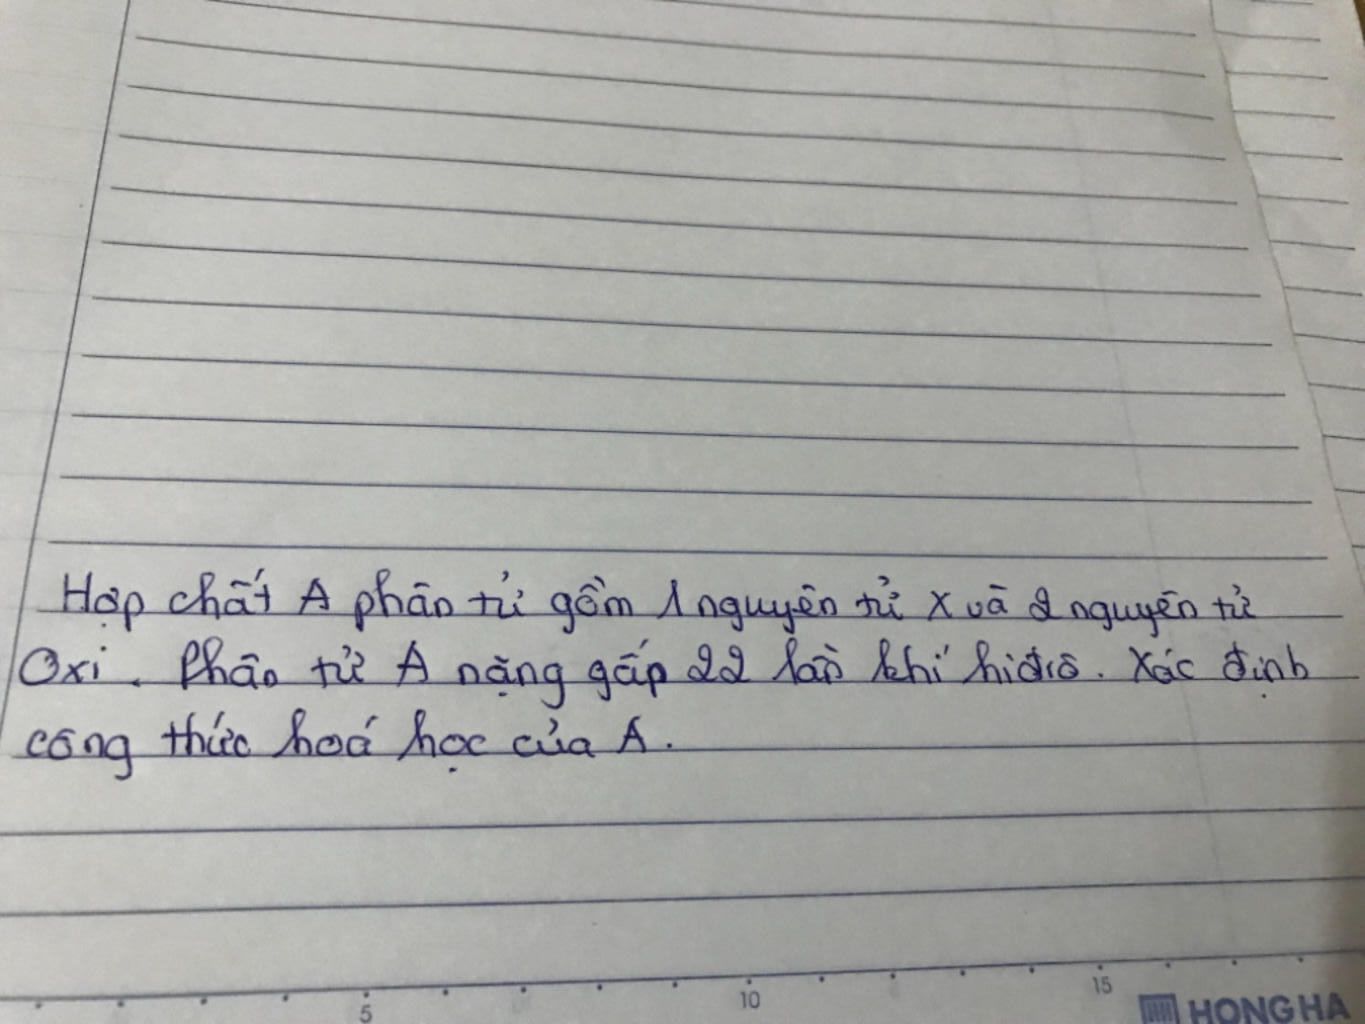 Hợp chất A phân tử gồm 1 nguyên tử X và 2 nguyên tử
Oxi. Phân tử A nặng gấp 22 lần khí hiđrô. Xác định
công thức hoá học của A.
5 10 15
HONG HA